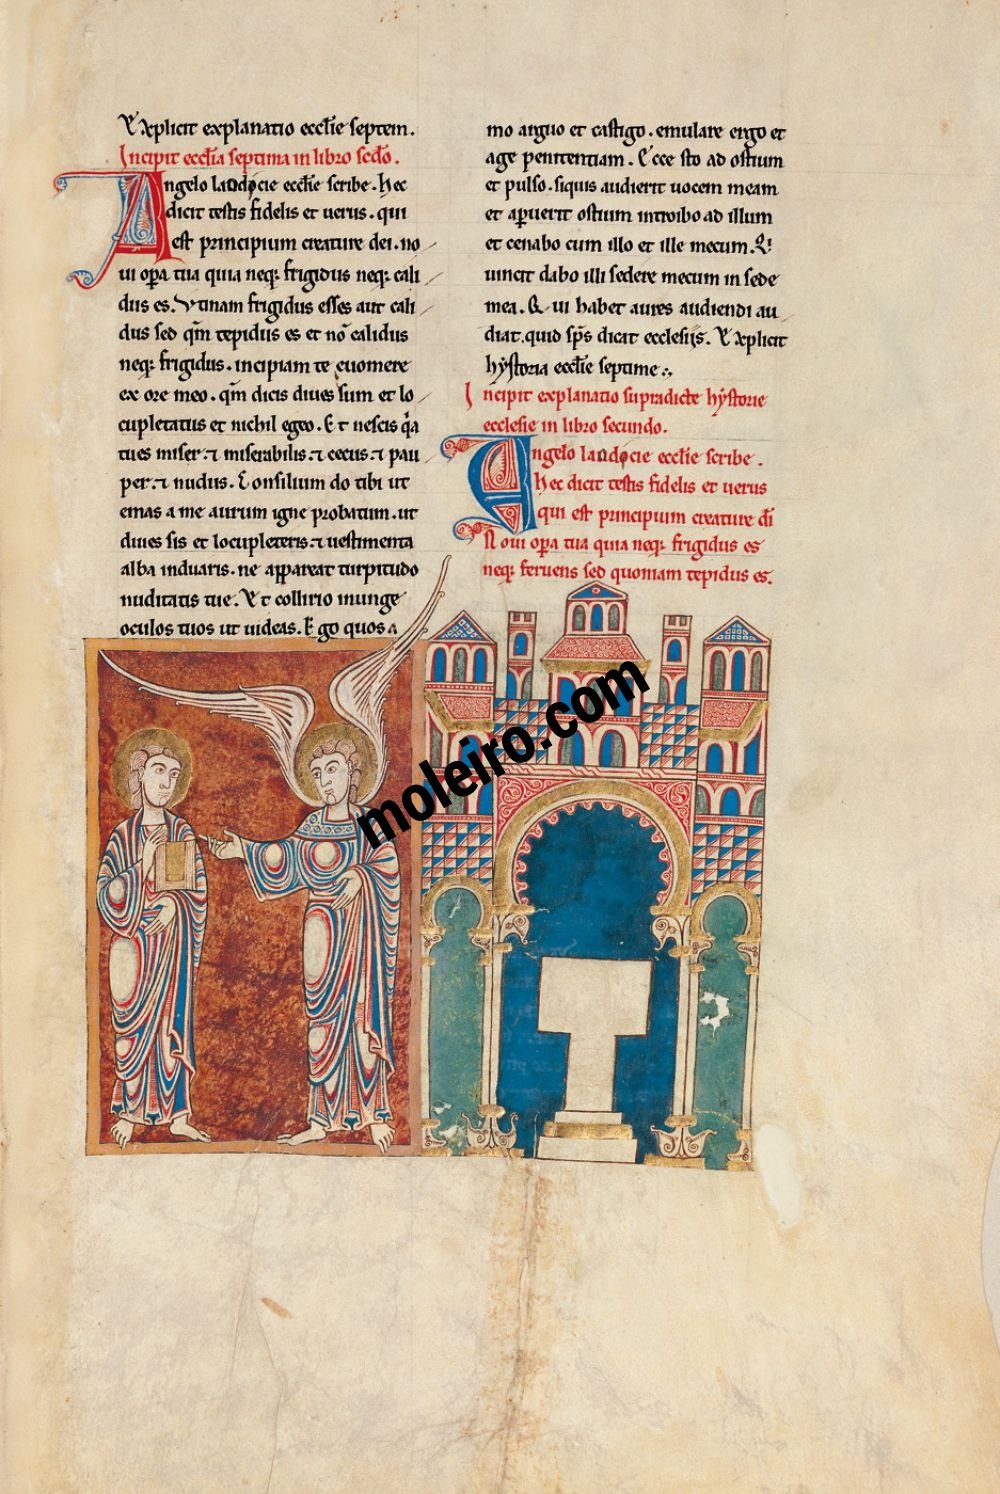 Explicit explanatio ecctie septem.
Incipit ecctia septima in libro scdo.
Angelo laodocie ecctie scribe. hec
dicit testis fidelis et uerus. qui
est principium creature dei. no
ui opa tua quia neq; frigidus neq; cali
dus es. Vtinam frigidus esses aut cali
dus sed qm tepidus es et nō calidus
neq; frigidus. incipiam te euomere
ex ore meo. qm dicis diues sum et lo
cupletatus et nichil egeo. Et nescis qa
tu es miser ⁊ miserabilis ⁊ cecus ⁊ pau
per ⁊ nudus. Consilium do tibi ut
emas a me aurum igne probatum. ut
diues sis et locupleteris ⁊ uestimenta
alba induaris. ne appareat turpitudo
nuditatis tue. Et collirio inunge
oculos tuos ut uideas. Ego quos a
mo arguo et castigo. emulare ergo et
age penitentiam. Ecce sto ad ostium
et pulso. siquis audierit uocem meam
et apuerit ostium introibo ad illum
et cenabo cum illo et ille mecum. Q
uincit dabo illi sedere mecum in sede
mea. Qui habet aures audiendi au
diat. quid sps dicat ecclesijs. Explicit
hystoria ecctie septime.
Incipit explanatio supradicte hystorie
ecclesie in libro secundo.
Angelo laodocie ecctie scribe.
Hec dicit testis fidelis et uerus
qui est principium creature di
Noui opa tua quia neq; frigidus es
neq; feruens sed quoniam tepidus es.
moleiro.com